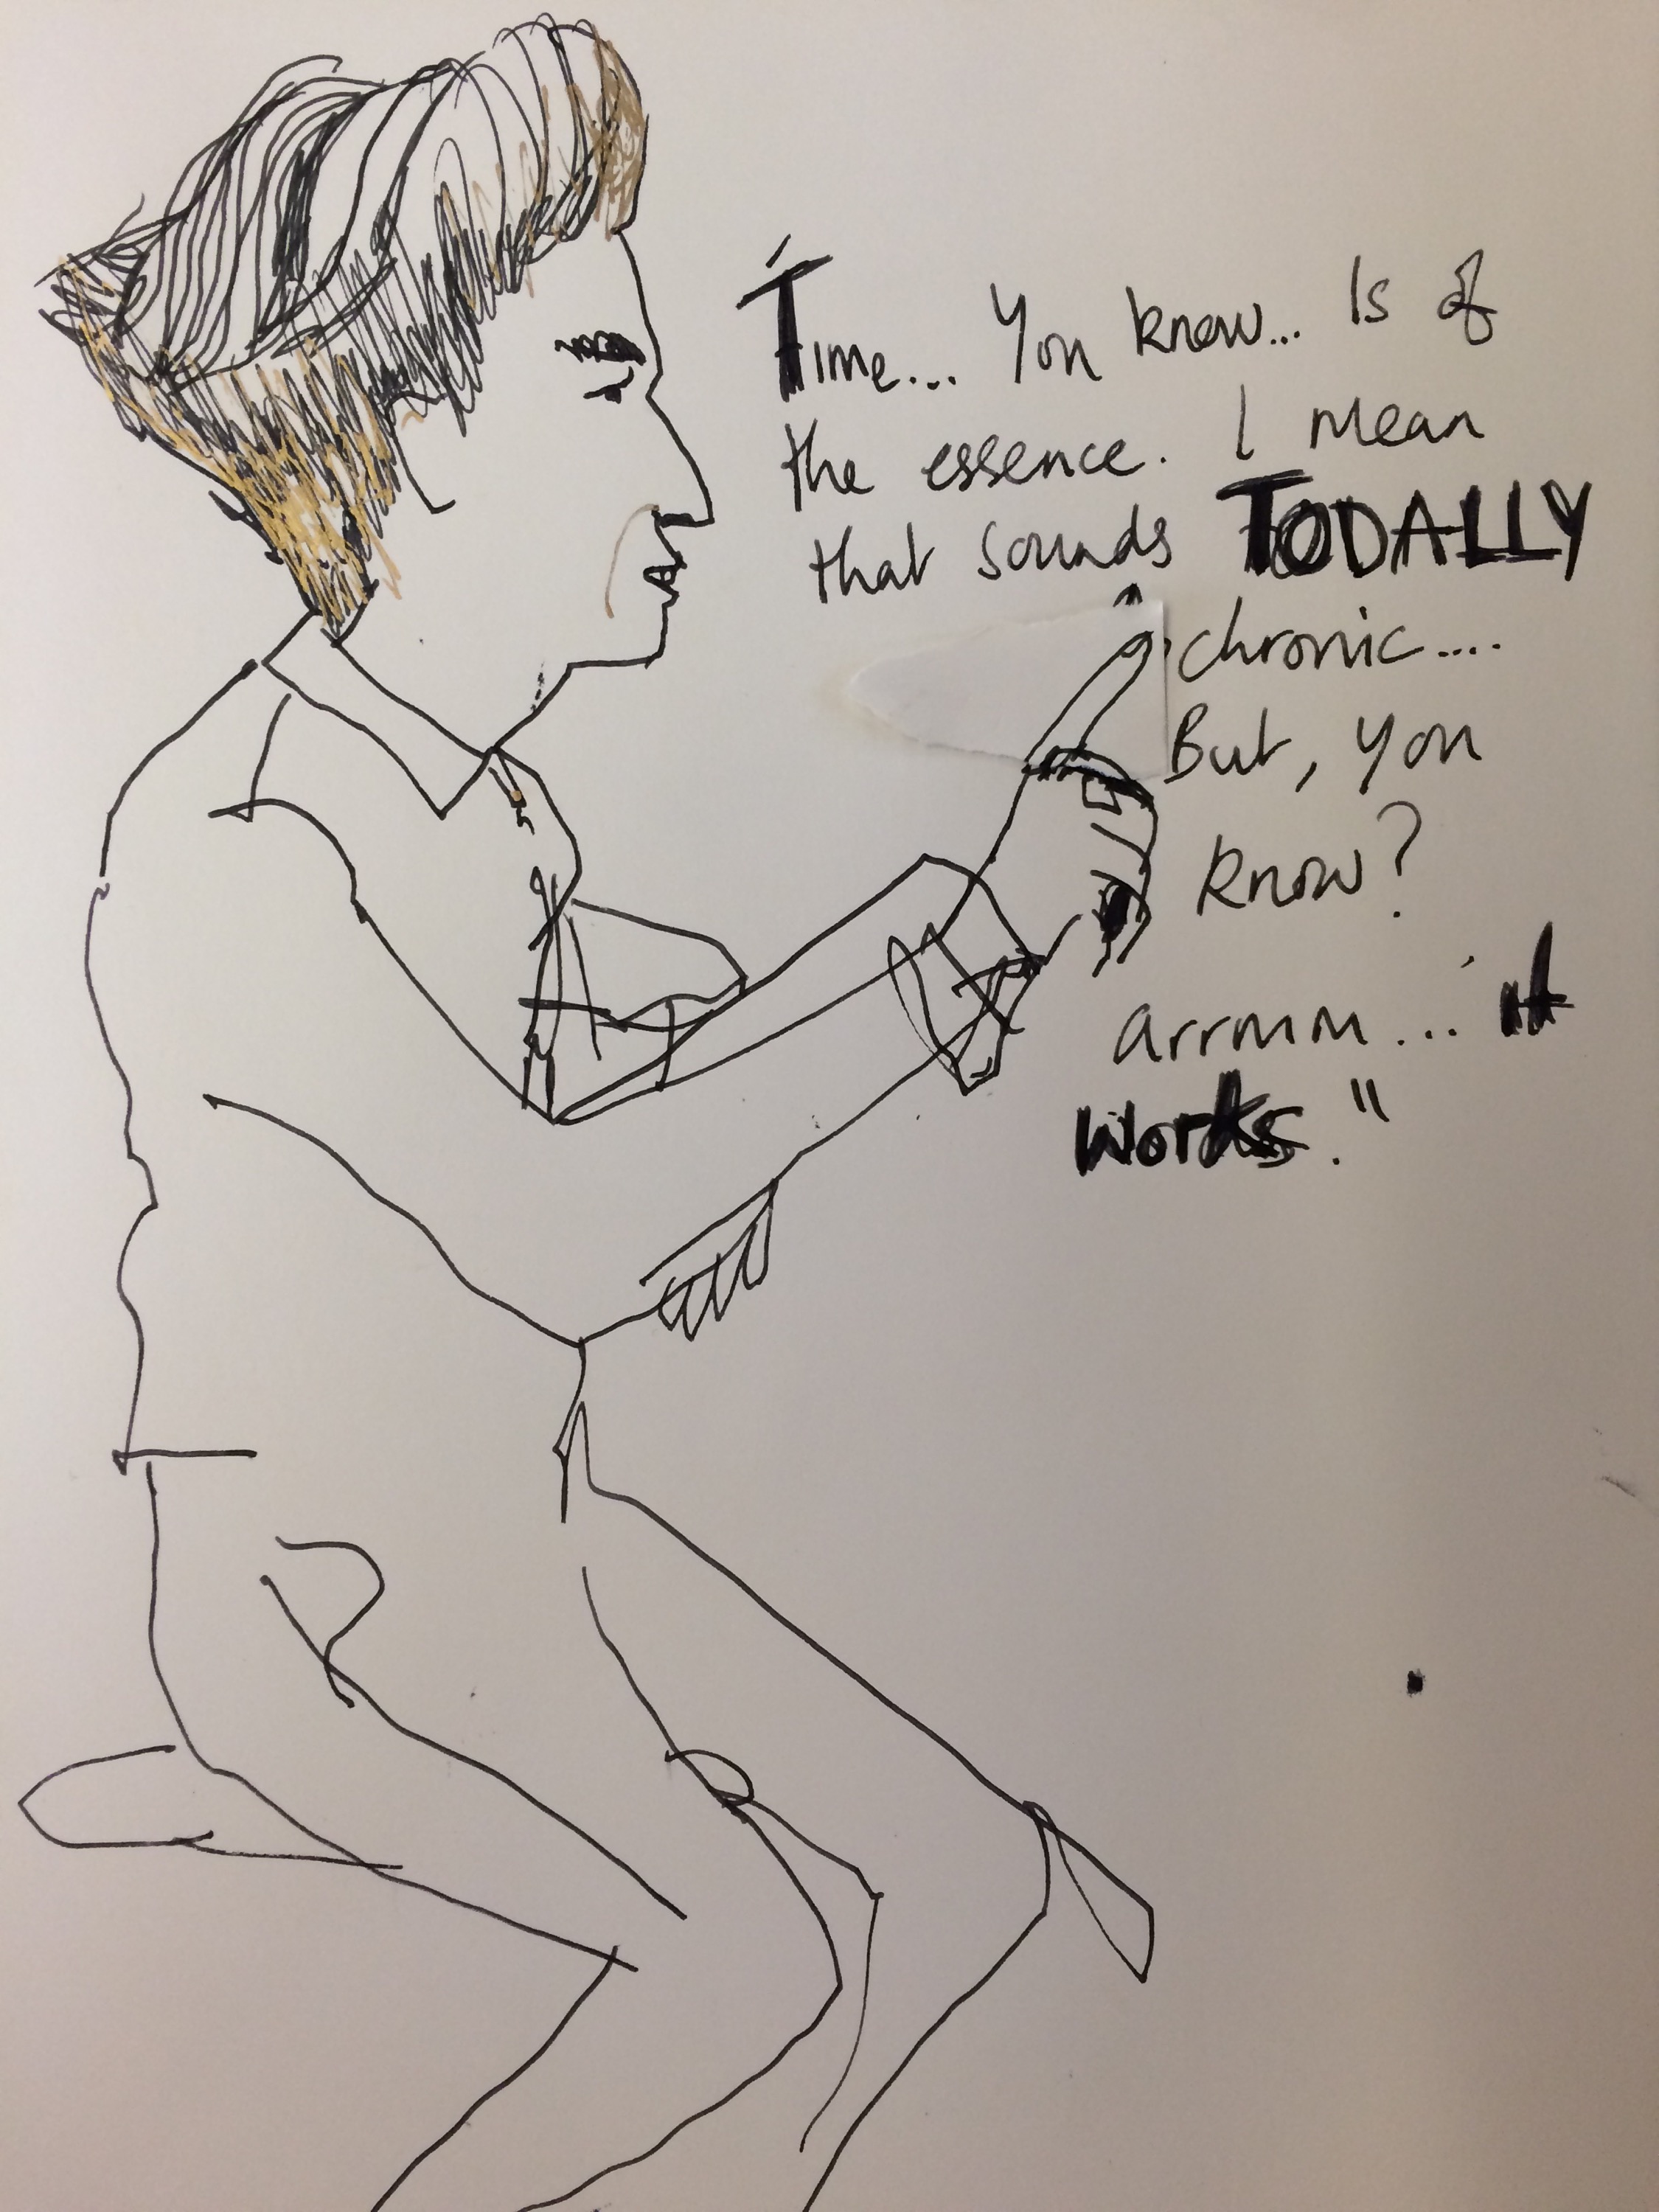 'Time... You know... Is of
the essence. I mean
that sounds TODALLY
chronic....
But, you
know?
arrmm... it
works."